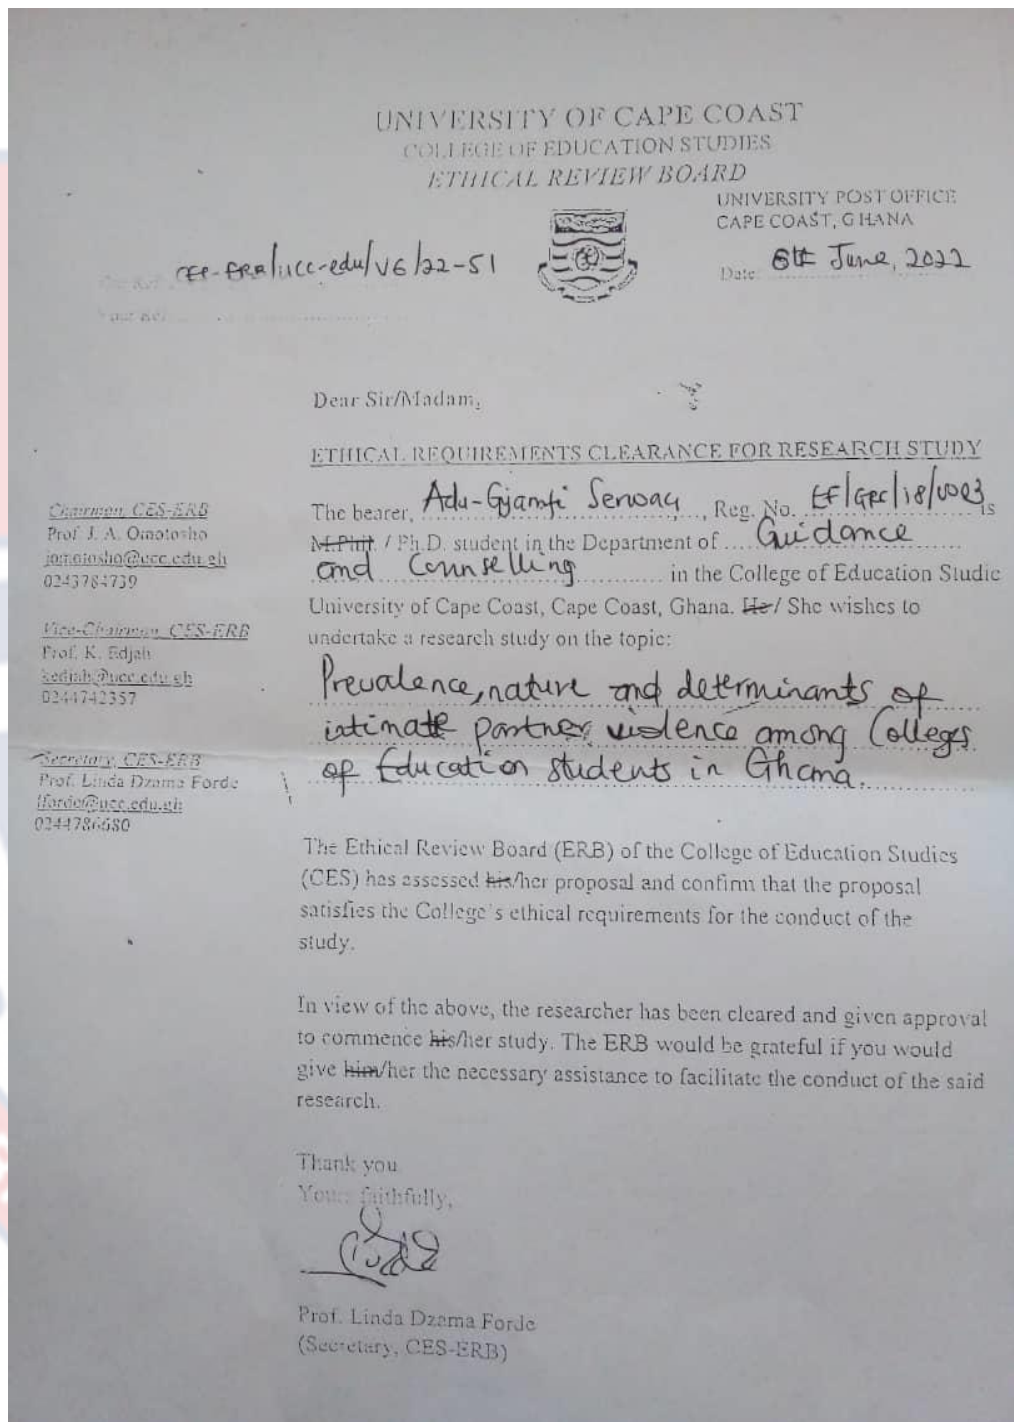 UNIVERSITY OF CAPE COAST
COLLEGE OF EDUCATION STUDIES
ETHICAL REVIEW BOARD
UNIVERSITY POST OFFICE
CAPE COAST, GHANA
Date: 6th June, 2022
/ucc-edu/V6/22-51
Your Ref:
Dear Sir/Madam,
ETHICAL REQUIREMENTS CLEARANCE FOR RESEARCH STUDY
Chairman, CES-ERB
Prof. J. A. Omotosho
jomotosho@ucc.edu.gh
0243784739
Vice-Chairman, CES-ERB
Prof. K. Edjah
kedjah@ucc.edu.gh
0244742357
Secretary, CES-ERB
Prof. Linda Dzama Forde
lforde@ucc.edu.gh
0244786680
The bearer, Adu-Gyamfi Serwaa, Reg. No. is
M.Phil. / Ph.D. student in the Department of Guidance
and Counselling in the College of Education Studie
University of Cape Coast, Cape Coast, Ghana. He / She wishes to
undertake a research study on the topic:
Prevalence, nature and determinants of
intimate partner violence among Colleges
of Education students in Ghana.
The Ethical Review Board (ERB) of the College of Education Studies
(CES) has assessed his/her proposal and confirm that the proposal
satisfies the College's ethical requirements for the conduct of the
study.
In view of the above, the researcher has been cleared and given approval
to commence his/her study. The ERB would be grateful if you would
give him/her the necessary assistance to facilitate the conduct of the said
research.
Thank you.
Yours faithfully,
Prof. Linda Dzama Forde
(Secretary, CES-ERB)